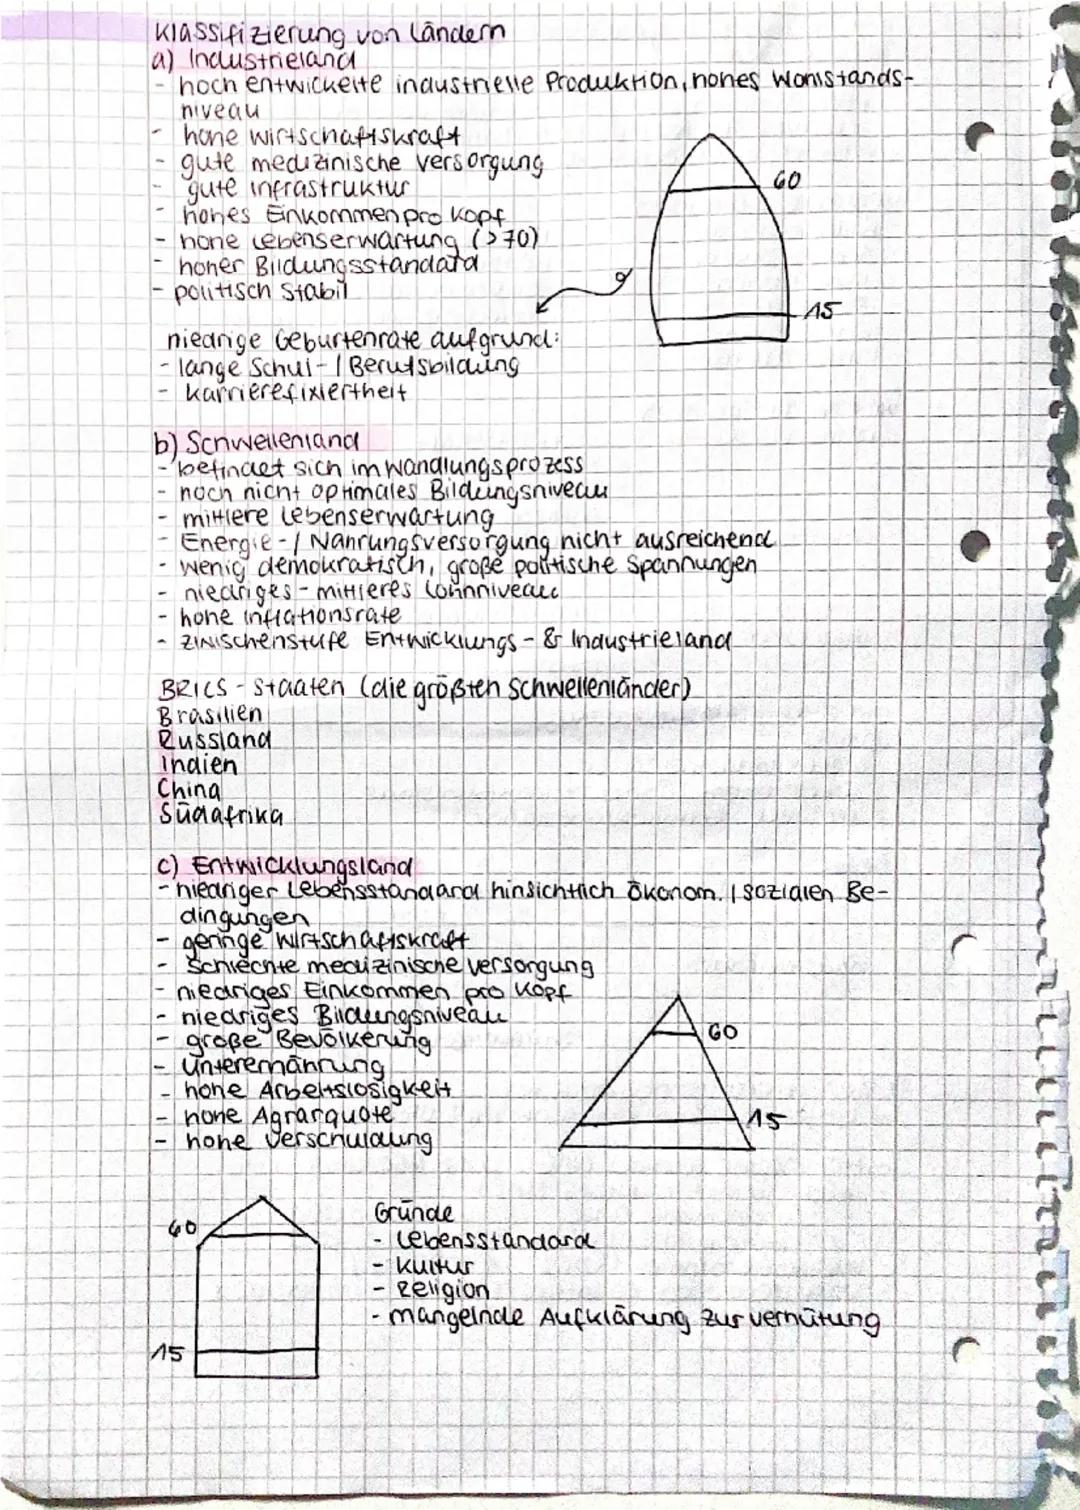 Klassifizierung von Ländern
a) Industrieland
- hoch entwickelte industrielle Produktion, hohes Wohlstands-
niveau
- hohe Wirtschaftskraft
- gute medizinische Versorgung
- gute Infrastruktur
- hohes Einkommen pro Kopf
- hohe Lebenserwartung (>70)
- hoher Bildungsstandard
- politisch stabil
60
15
niedrige Geburtenrate aufgrund:
- lange Schul- / Berufsbildung
- Karrierefixiertheit
b) Schwellenland
- befindet sich im Wandlungsprozess
- noch nicht optimales Bildungsniveau
- mittlere Lebenserwartung
- Energie- / Nahrungsversorgung nicht ausreichend
- wenig demokratisch, große politische Spannungen
- niedriges - mittleres Lohnniveau
- hohe Inflationsrate
- Zwischenstufe Entwicklungs- & Industrieland
BRICS - Staaten (die größten Schwellenländer)
Brasilien
Russland
Indien
China
Südafrika
c) Entwicklungsland
- niedriger Lebensstandard hinsichtlich ökonom. / sozialen Be-
dingungen
- geringe Wirtschaftskraft
- schlechte medizinische Versorgung
- niedriges Einkommen pro Kopf
- niedriges Bildungsniveau
- große Bevölkerung
- Unterernährung
- hohe Arbeitslosigkeit
- hohe Agrarquote
- hohe Verschuldung
60
15
60
15
Gründe
- Lebensstandard
- Kultur
- Religion
- mangelnde Aufklärung zur Verhütung